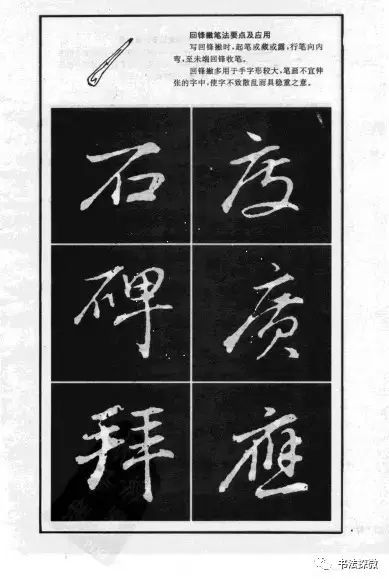 回锋撇笔法要点及应用
写回锋撇时,起笔或藏或露,行笔向内
弯,至末端回锋收笔。
回锋撇多用于手字形较大,笔画不宜伸
张的字中,使字不致散乱而具稳重之意。
石 度
碑 廣
拜 應
书法探教